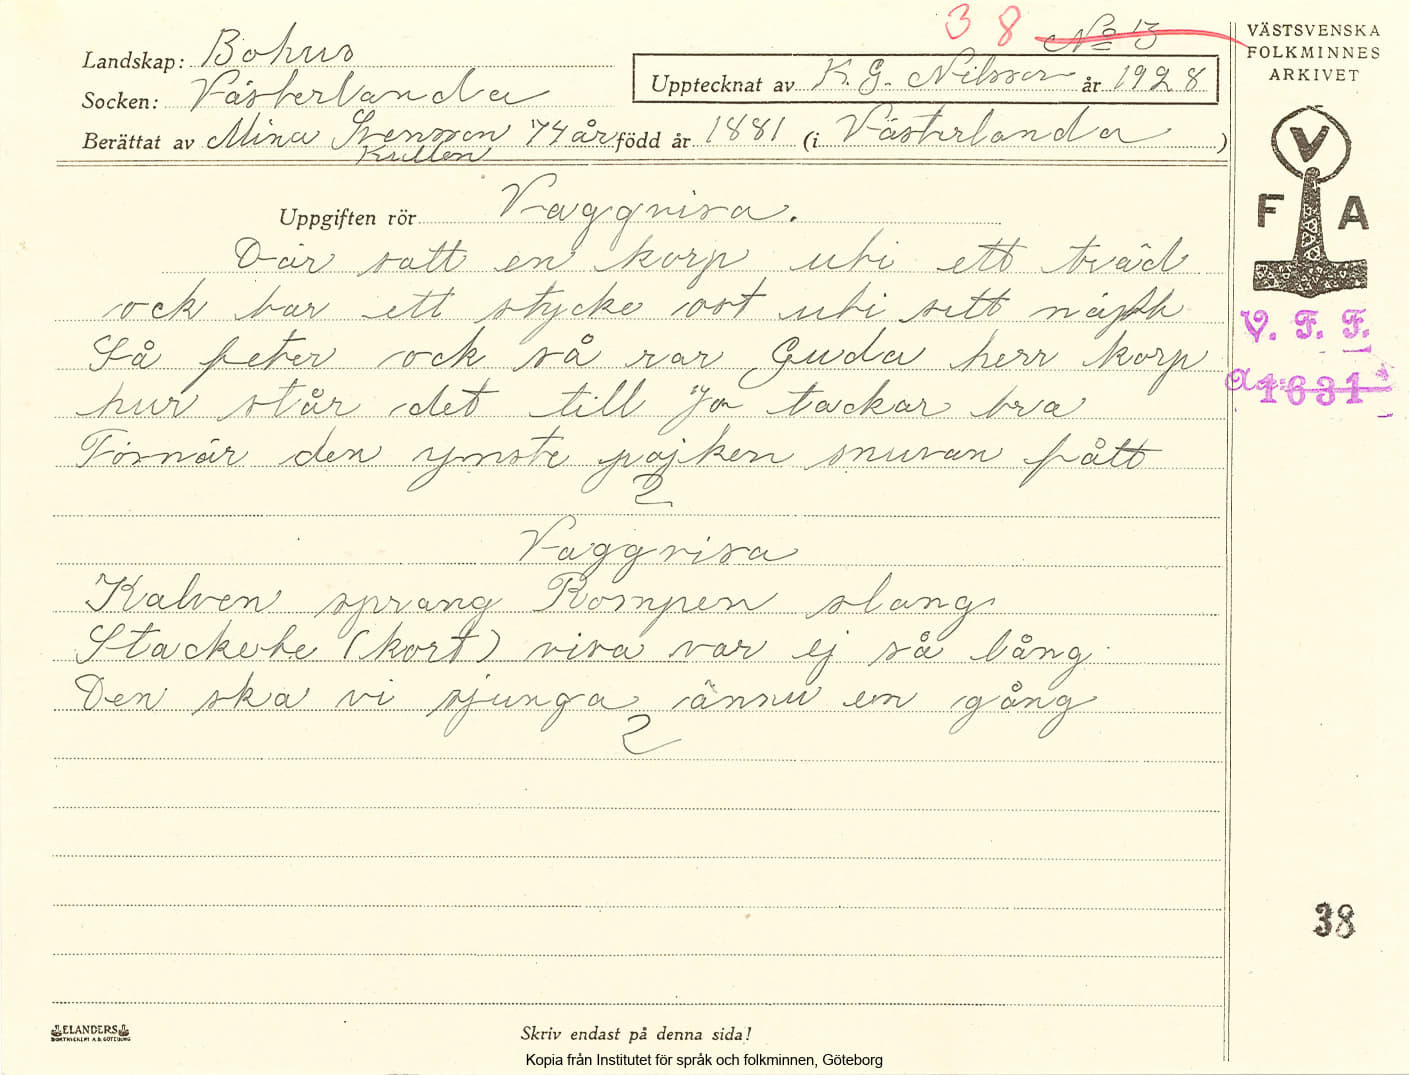 38 No 13
Landskap: Bohus
Socken: Västerlanda
Upptecknat av K. G. Nilsson år 1928
Berättat av Mina Svensson 74 år född år 1881 (i Västerlanda)
Kullen
Uppgiften rör Vaggvisa.
Där satt en korp uti ett träd
ock bar ett stycke ost uti sitt näbb
Så peter ock så rar Guda herr korp
hur står det till Jo tackar bra
Försnär den ynste pojken snuvan fått
2
Vaggvisa
Kalven sprang Rompen slang
Stackete (kort) visa var ej så lång
Den ska vi sjunga ännu en gång
2
VÄSTSVENSKA
FOLKMINNES
ARKIVET
V
F A
V. F. F.
1631
38
ELANDERS
BOKTRYCKERI A.B. GÖTEBORG
Skriv endast på denna sida!
Kopia från Institutet för språk och folkminnen, Göteborg